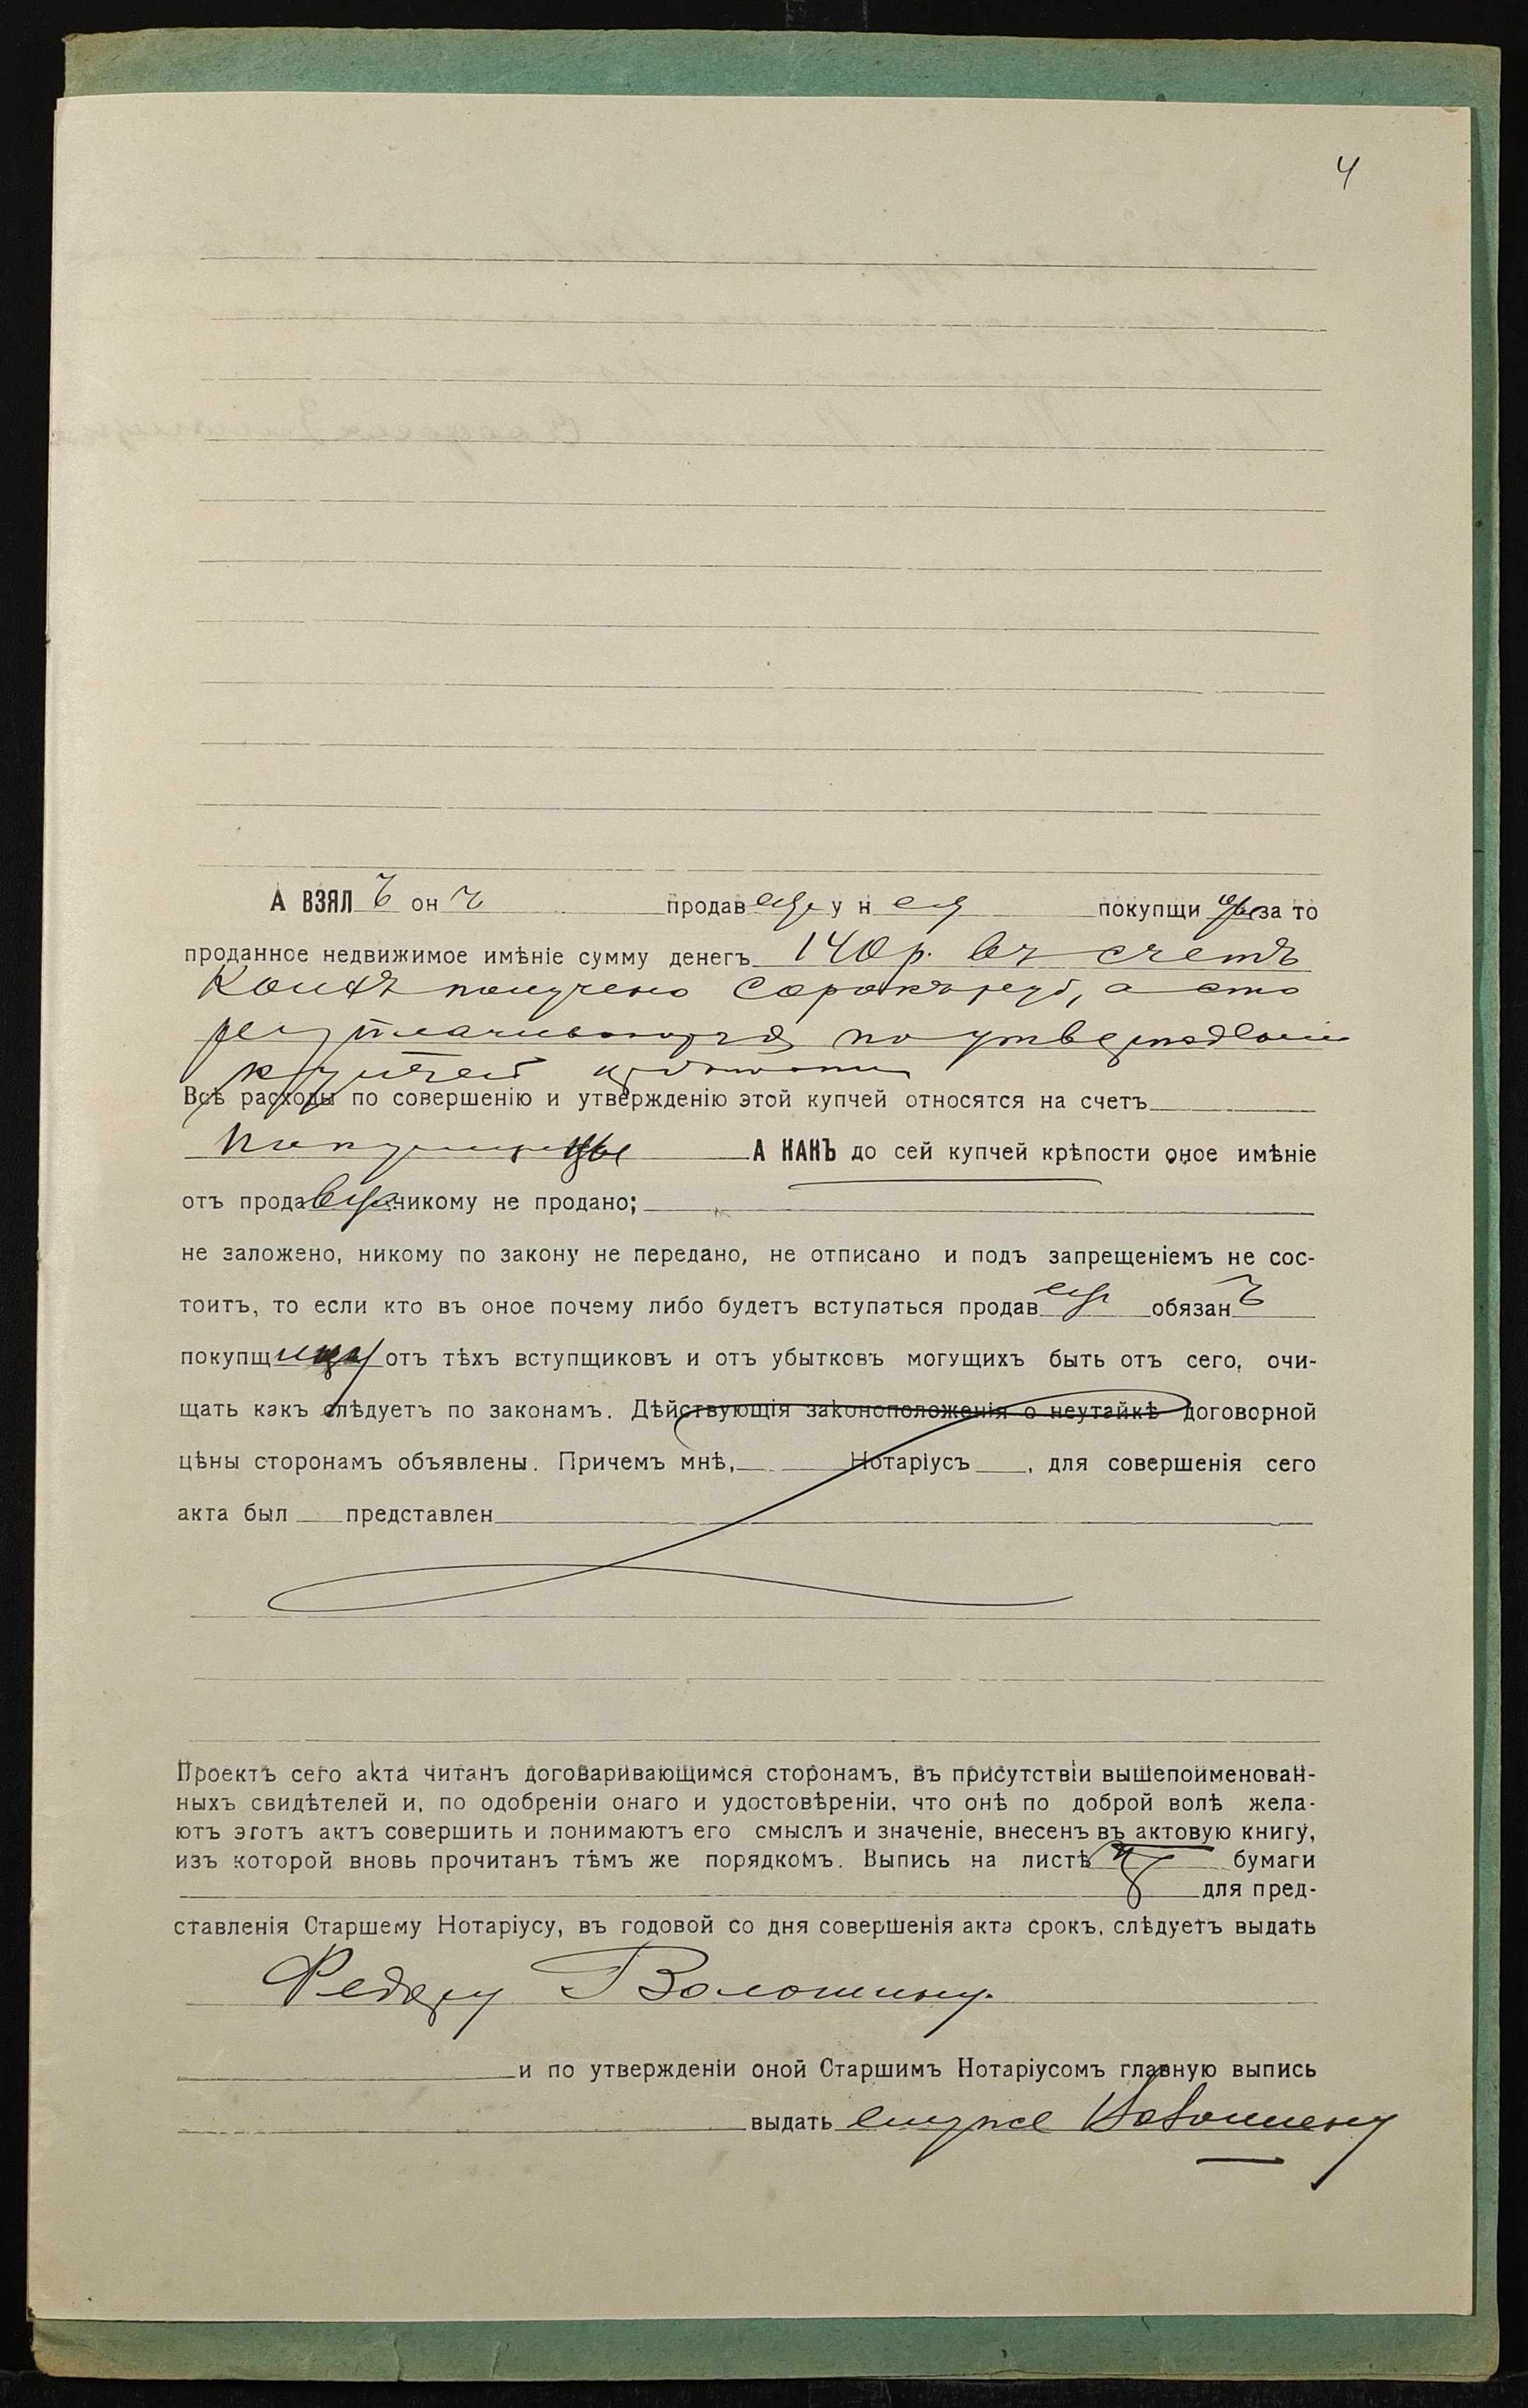 4
А ВЗЯЛЪ онъ продавецъ у нея покупщицы за то
проданное недвижимое имѣніе сумму денегъ 140 р. въ счетъ
коихъ получено сорокъ руб, а сто
руб уплачиваются по утвержденіи
купчей крѣпости
Всѣ расходы по совершенію и утвержденію этой купчей относятся на счетъ
покупщицы А КАКЪ до сей купчей крѣпости оное имѣніе
отъ продавца никому не продано;
не заложено, никому по закону не передано, не отписано и подъ запрещеніемъ не сос-
тоитъ, то если кто въ оное почему либо будетъ вступаться продавецъ обязанъ
покупщицу отъ тѣхъ вступщиковъ и отъ убытковъ могущихъ быть отъ сего, очи-
щать какъ слѣдуетъ по законамъ. Дѣйствующія законоположенія о неутайкѣ договорной
цѣны сторонамъ объявлены. Причемъ мнѣ, Нотаріусъ , для совершенія сего
акта был представлен
Проектъ сего акта читанъ договаривающимся сторонамъ, въ присутствіи вышепоименован-
ныхъ свидѣтелей и, по одобреніи онаго и удостовѣреніи, что онѣ по доброй волѣ жела-
ютъ этотъ актъ совершить и понимаютъ его смыслъ и значеніе, внесенъ въ актовую книгу,
изъ которой вновь прочитанъ тѣмъ же порядкомъ. Выпись на листѣ бумаги
для пред-
ставленія Старшему Нотаріусу, въ годовой со дня совершенія акта срокъ, слѣдуетъ выдать
Федору Волошину.
и по утвержденіи оной Старшимъ Нотаріусомъ главную выпись
выдать ему же Волошину